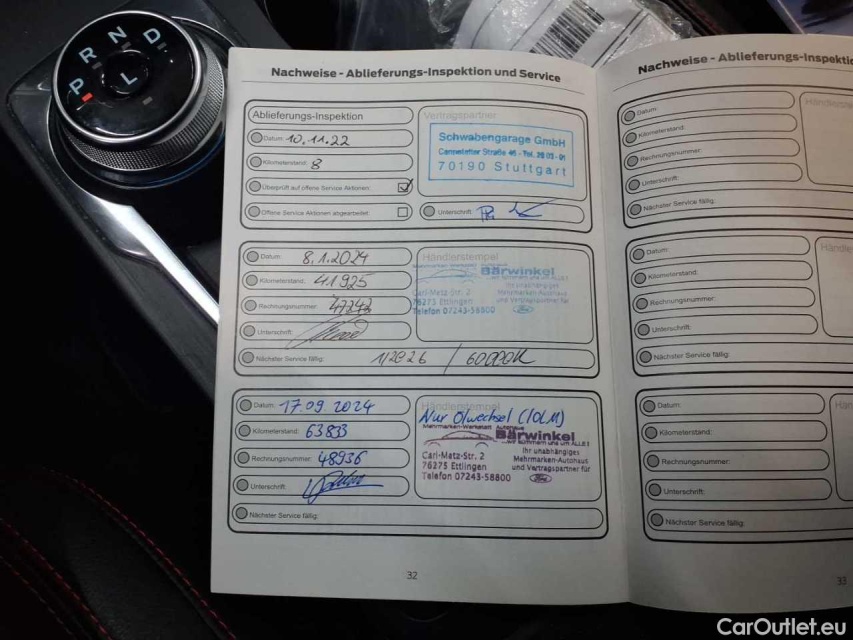 R N D
P L
Nachweise - Ablieferungs-Inspektion und Service
Ablieferungs-Inspektion
Vertragspartner
Datum: 10.11.22
Schwabengarage GmbH
Kilometerstand: 8
70190 Stuttgart
Überprüft auf offene Service Aktionen:
Offene Service Aktionen abgearbeitet
Unterschrift:
Datum: 8.1.2024
Händlerstempel
Kilometerstand: 41925
Bärwinkel
Rechnungsnummer: 47242
Carl-Metz-Str. 2
76275 Ettlingen
Telefon 07243-58800
Ihr unabhängiges
Mehrmarken-Autohaus
und Vertragspartner für
Ford
Unterschrift:
Nächster Service fällig: 1/2026 / 60000K
Datum: 17.09.2024
Händlerstempel
Nur Ölwechsel (IOLM)
Kilometerstand: 63833
Mehrmarken-Werkstatt Autohaus
Bärwinkel
...wir kümmern uns um ALLE!
Rechnungsnummer: 48936
Carl-Metz-Str. 2
76275 Ettlingen
Telefon 07243-58800
Ihr unabhängiges
Mehrmarken-Autohaus
und Vertragspartner für
Ford
Unterschrift:
Nächster Service fällig:
32
Nachweise - Ablieferungs-Inspekti
Datum:
Händlerst
Kilometerstand:
Rechnungsnummer:
Unterschrift:
Nächster Service fällig:
Datum:
Händle
Kilometerstand:
Rechnungsnummer:
Unterschrift:
Nächster Service fällig:
Datum:
Hän
Kilometerstand:
Rechnungsnummer:
Unterschrift:
Nächster Service fällig:
33
CarOutlet.eu